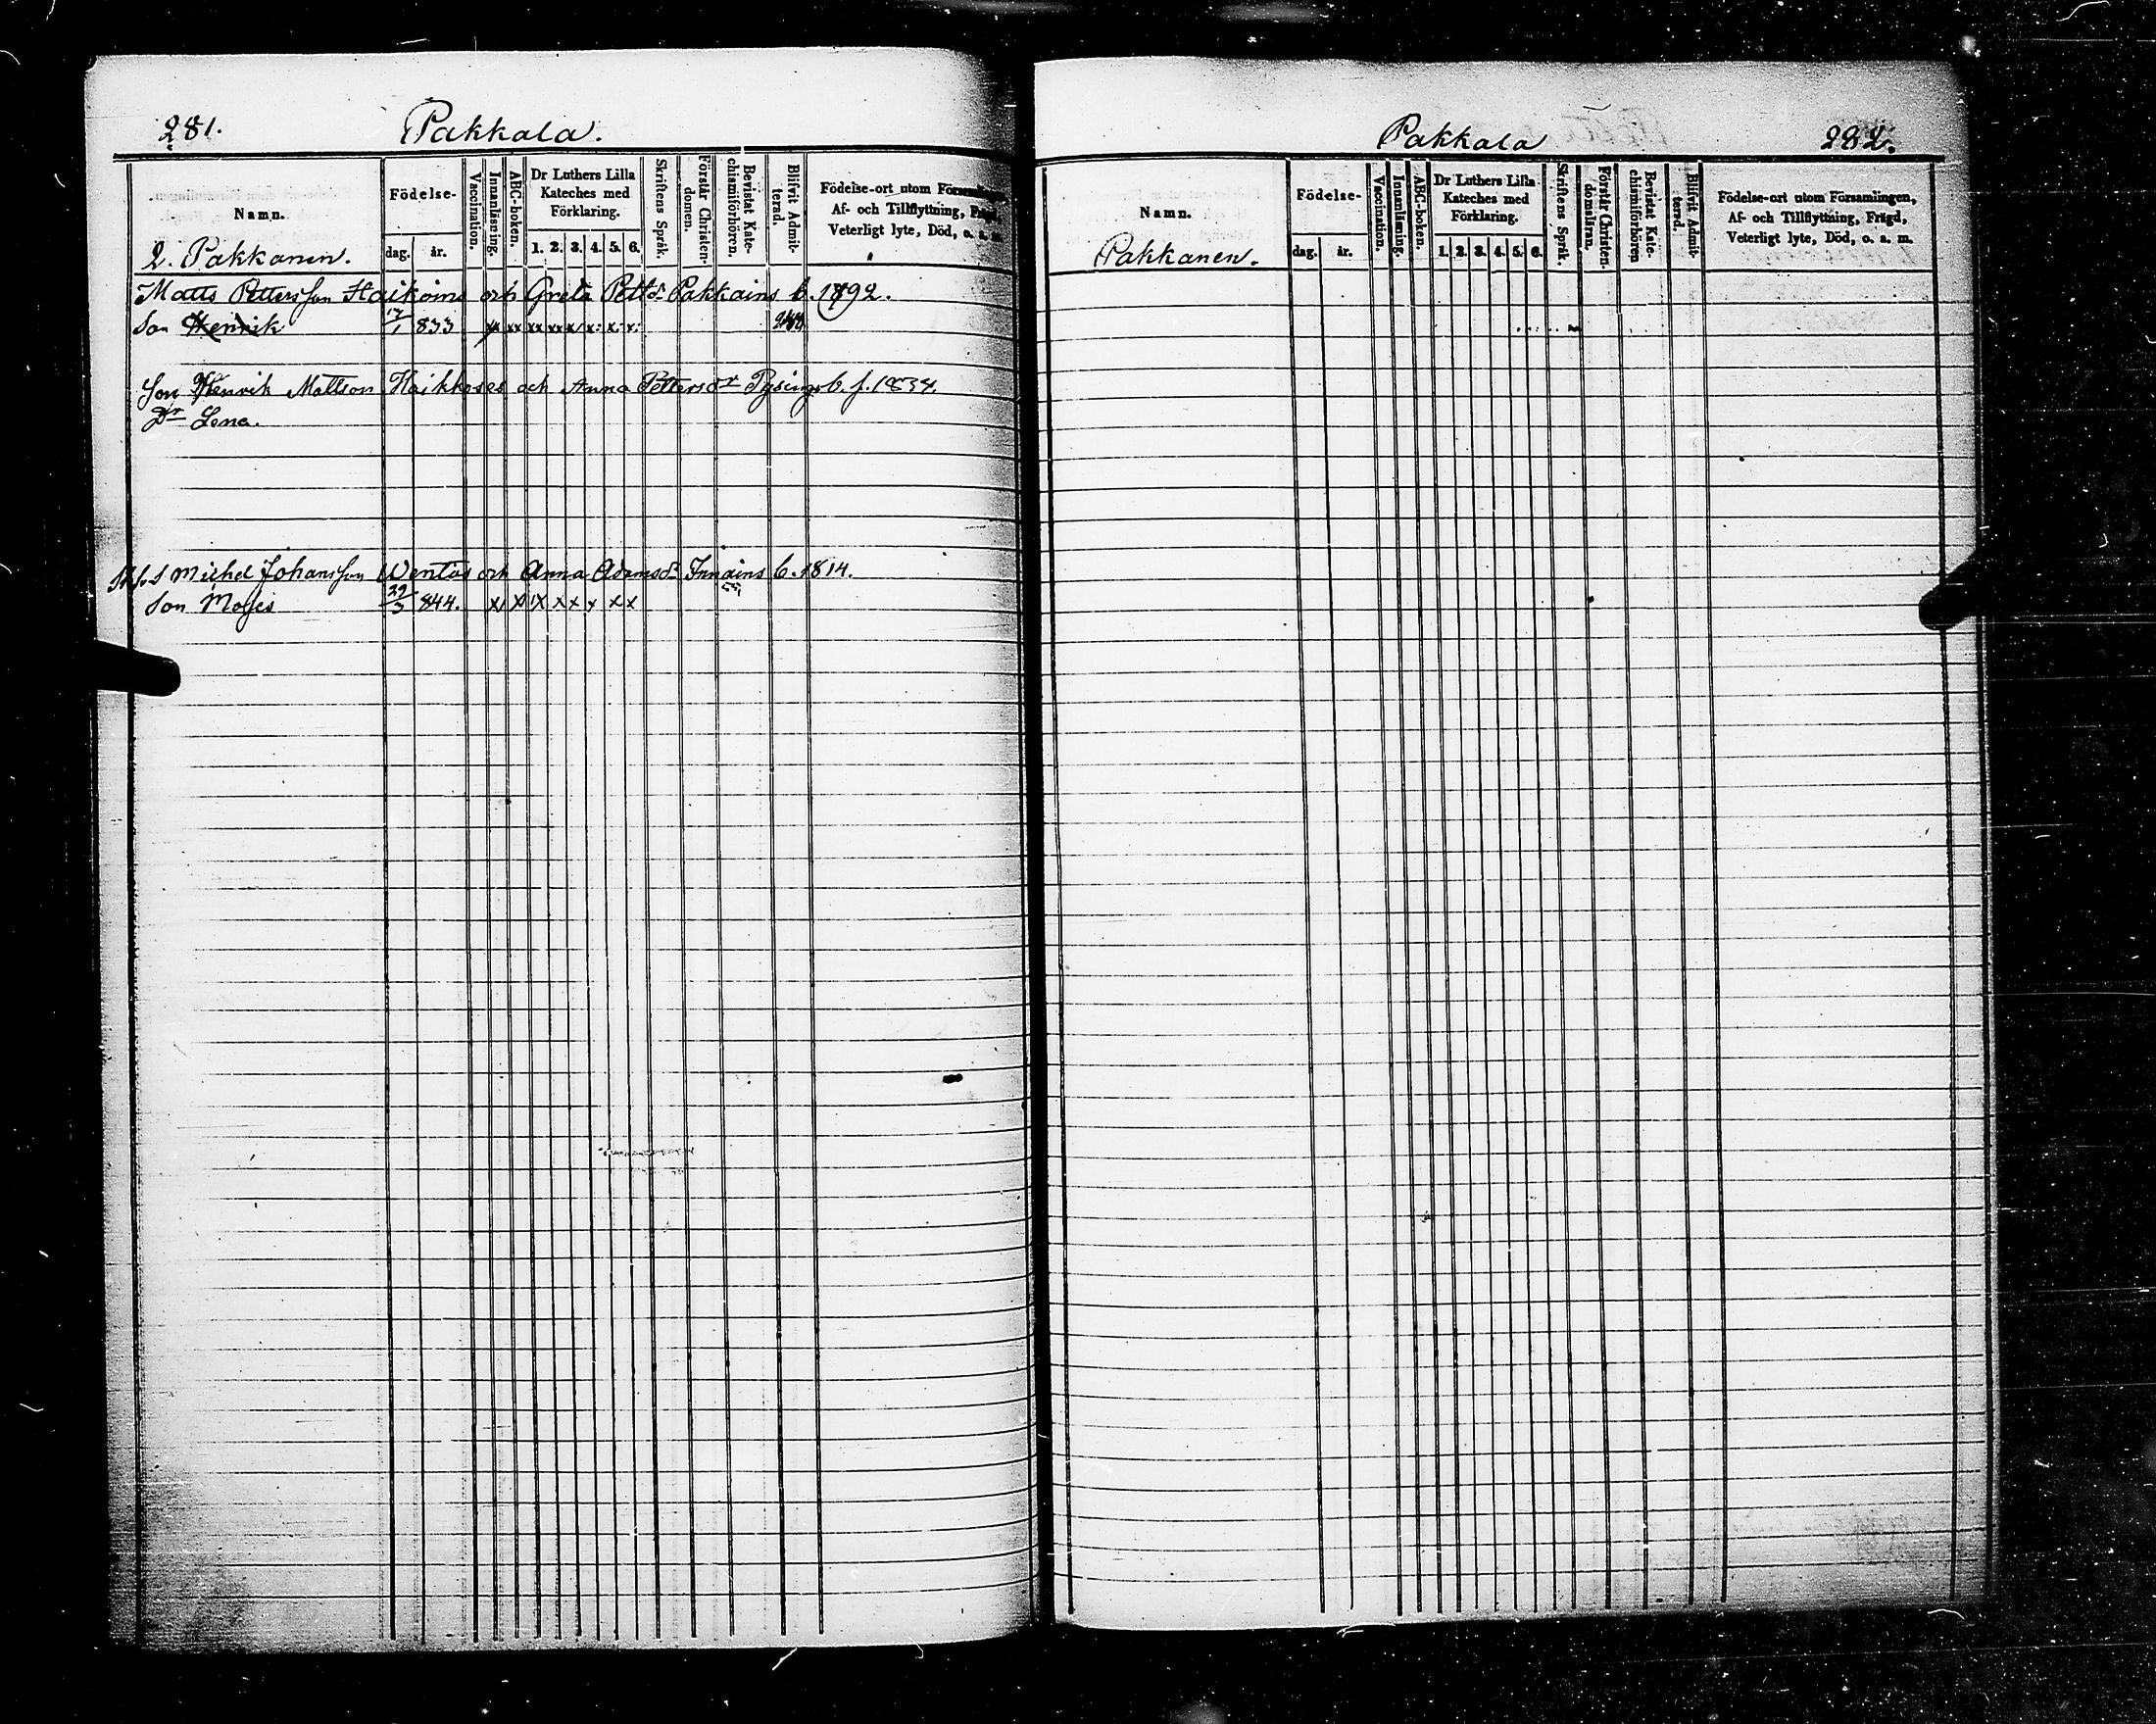 281. Pakkala.
Namn.
Födelse-
dag. år.
Vaccination.
Innanläsning.
ABC-boken.
Dr Luthers Lilla Kateches med Förklaring.
1. 2. 3. 4. 5. 6.
Skriftens Språk.
Förstår Christen-domen.
Bevistat Kate-chismiförhören.
Blifvit Admit-terad.
Födelse-ort utom Församlingen,
Af- och Tillflyttning, Frägd,
Veterligt lyte, Död, o. s. m.
2. Pakkanen.
Matts Pettersson Haikoins och Greta Pettdr Pakkains b. 1892.
Son Henrik 17/1 833 x xx xx xx x x x x
Son Henrik Mattson Haikkoses och Anna Pettersdr b. f. 1838.
Dr Lena.
Michel Johansson Wentäs och Anna Adamsdr Innains b. 1814.
Son Moses 29/3 844. x x x x x x x x
Pakkala 282.
Namn.
Födelse-
dag. år.
Vaccination.
Innanläsning.
ABC-boken.
Dr Luthers Lilla
Kateches med
Förklaring.
1. 2. 3. 4. 5. 6.
Skriftens Språk.
Förstår Christen-domsläran.
Bevistat Kate-chismiförhören
Blifvit Admit-terad.
Födelse-ort utom Församlingen,
Af- och Tillflyttning, Frägd,
Veterligt lyte, Död, o. s. m.
Pakkanen.